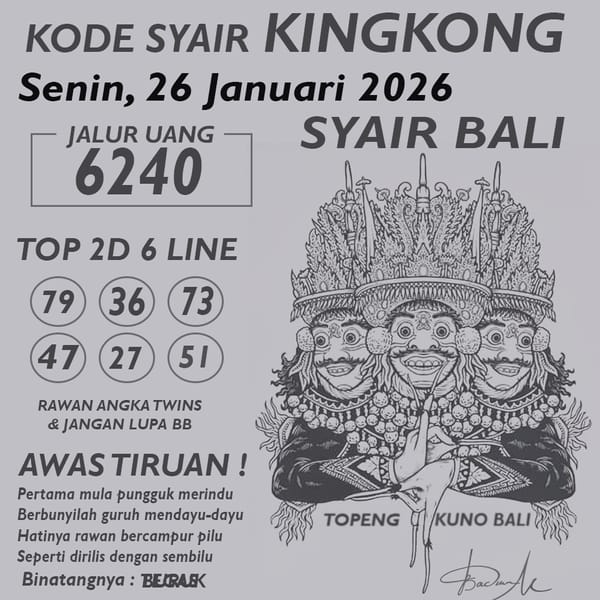 KODE SYAIR KINGKONG
Senin, 26 Januari 2026
SYAIR BALI
JALUR UANG
6240
TOP 2D 6 LINE
79 36 73
47 27 51
RAWAN ANGKA TWINS
& JANGAN LUPA BB
AWAS TIRUAN !
Pertama mula pungguk merindu
Berbunyilah guruh mendayu-dayu
Hatinya rawan bercampur pilu
Seperti dirilis dengan sembilu
Binatangnya :
TOPENG KUNO BALI